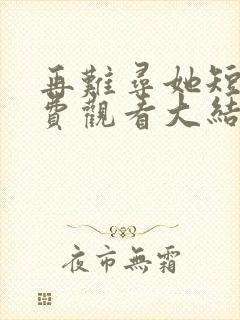 再難尋她短
費觀看大結
夜市無霜